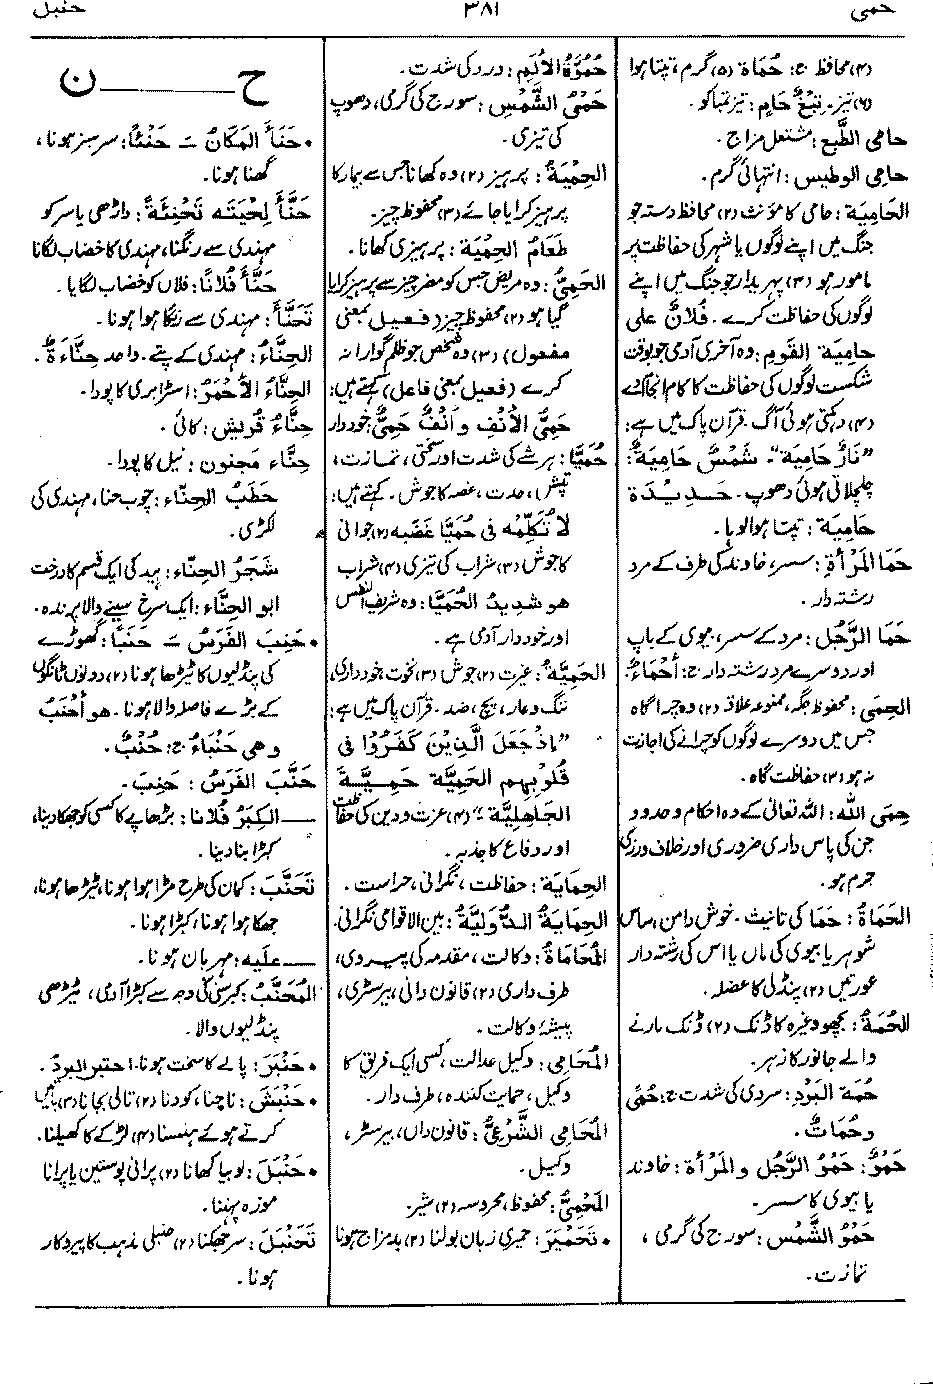 حمی ۳۸۱ حنبل
(۴) محافظ ج: حُمَاۃ (۵) گرم، تپتا ہوا
(۶) تیز۔ تِبْغٌ حَامٍ: تیز تمباکو۔
حامی الطَّبع: مشتعل مزاج۔
حامِی الوطیس: انتہائی گرم۔
الحَامِیَۃ: حامی کا مؤنث (۲) محافظ دستہ جو
جنگ میں اپنے لوگوں یا شہر کی حفاظت پر
مامور ہو (۳) پہریدار جو جنگ میں اپنے
لوگوں کی حفاظت کرے۔ فُلَانٌ علی
حامِیَۃ القَومِ: وہ آخری آدمی جو بوقت
شکست لوگوں کی حفاظت کا کام انجام دے
(۴) دہکتی ہوئی آگ۔ قرآن پاک میں ہے:
”نَارٌ حَامِیَۃ“۔ شَمْسٌ حَامِیَۃٌ:
چلچلاتی ہوئی دھوپ۔ حَدِیْدَۃ
حَامِیَۃ: تپتا ہوا لوہا۔
حَمَا المَرْأۃِ: سسر، خاوند کی طرف کے مرد
رشتہ دار۔
حَمَا الرَّجُل: مرد کے سسر، بیوی کے باپ
اور دوسرے مرد رشتہ دار ج: أَحْمَاءٌ۔
الحِمَی: محفوظ جگہ، ممنوعہ علاقہ (۲) وہ چراگاہ
جس میں دوسرے لوگوں کو چرانے کی اجازت
نہ ہو (۳) حفاظت گاہ۔
حِمَی اللّٰہ: اللہ تعالیٰ کے وہ احکام و حدود
جن کی پاس داری ضروری اور خلاف ورزی
جرم ہو۔
الحَمَاۃُ: حَمَا کی تانیث۔ خوش دامن، ساس
شوہر یا بیوی کی ماں یا اس کی رشتہ دار
عورتیں (۲) پنڈلی کا عضلہ۔
الحُمَۃُ: بچھو وغیرہ کا ڈنک (۲) ڈنک مارنے
والے جانور کا زہر۔
حُمَۃ البَرْدِ: سردی کی شدت ج: حُمًی
وحُمَاتٌ۔
حَمْوٌ: حَمْوُ الرَّجُل والمَرْأۃ: خاوند
یا بیوی کا سسر۔
حَمْوُ الشَّمْس: سورج کی گرمی،
تمازت۔
حُمُوَّۃُ الأَلَمِ: درد کی شدت۔
حَمْیُ الشَّمْس: سورج کی گرمی، دھوپ
کی تیزی۔
الحِمْیَۃُ: پرہیز (۲) وہ کھانا جس سے بیمار کا
پرہیز کرایا جائے (۳) محفوظ چیز۔
طَعَامُ الحِمْیَۃ: پرہیزی کھانا۔
الحَمِیُّ: وہ مریض جس کو مضر چیز سے پرہیز کرایا
گیا ہو (۲) محفوظ چیز (فَعِیل بمعنی
مفعول) (۳) وہ شخص جو ظلم گوارا نہ
کرے (فعیل بمعنی فاعل) کہتے ہیں:
حَمِیُّ الأَنْفِ و أَنْفٌ حَمِیٌّ: خود دار
حُمَیَّا: ہر شے کی شدت اور سختی، تمازت،
تپش، حدت، غصہ کا جوش۔ کہتے ہیں:
لَا تُکَلِّمْہ فی حُمَیَّا غَضَبِہ (۲) جوانی
کا جوش (۳) شراب کی تیزی (۴) شراب
ھو شَدِیدُ الحُمَیَّا: وہ شریف النفس
اور خود دار آدمی ہے۔
الحَمِیَّۃُ: عزت (۲) جوش (۳) نخوت، خود داری،
ننگ و عار، پچ، ضد۔ قرآن پاک میں ہے:
”إِذْ جَعَلَ الَّذِیْنَ کَفَرُوْا فی
قُلُوْبِہِم الحَمِیَّۃَ حَمِیَّۃَ
الجَاہِلِیَّۃ“ (۴) عزت و دین کی حفاظت
اور دفاع کا جذبہ۔
الحِمَایَۃ: حفاظت، نگرانی، حراست۔
الحِمَایَۃُ الدُّوَلِیَّۃُ: بین الاقوامی نگرانی۔
المُحَامَاۃ: وکالت، مقدمہ کی پیروی،
طرف داری (۲) قانون دانی، بیرسٹری،
پیشۂ وکالت۔
المُحَامِی: وکیل عدالت، کسی ایک فریق کا
وکیل، حمایت کنندہ، طرف دار۔
المُحَامِی الشَّرْعِیُّ: قانون داں، بیرسٹر،
وکیل۔
المَحْمِیُّ: محفوظ، محروسہ (۲) شیر۔
• تَحَمْیَرَ: حمیری زبان بولنا (۲) بدمزاج ہونا
ح ــــ ن
• حَنَأَ المَکَانُ ــَـ حَنْئًا: سرسبز ہونا،
گھنا ہونا۔
حَنَّأَ لِحْیَتَہ تَحْنِئَۃً: داڑھی یا سر کو
مہندی سے رنگنا، مہندی کا خضاب لگانا
حَنَّأَ فُلَانًا: فلاں کو خضاب لگایا۔
تَحَنَّأَ: مہندی سے رنگا ہوا ہونا۔
الحِنَّاءُ: مہندی کے پتے۔ واحد حِنَّاءَۃٌ۔
الحِنَّاءُ الأَحْمَرُ: اسٹرابری کا پودا۔
حِنَّاءُ قُرَیش: کائی۔
حِنَّاء مَجنون: نیل کا پودا۔
حَطَبُ الحِنَّاء: چوب حنا، مہندی کی
لکڑی۔
شَجَرُ الحِنَّاء: بید کی ایک قسم کا درخت
ابو الحِنَّاء: ایک سرخ سینے والا پرندہ۔
• حَنِبَ الفَرَسُ ــَـ حَنَبًا: گھوڑے
کی پنڈلیوں کا ٹیڑھا ہونا (۲) دونوں ٹانگوں
کے بڑے فاصلہ والا ہونا۔ ھو أَحْنَبُ
وھی حَنْبَاءُ ج: حُنْبٌ۔
حَنَّبَ الفَرَسُ: حَنِبَ۔
ــــ الکِبَرُ فُلَانًا: بڑھاپے کا کسی کو جھکا دینا،
کبڑا بنا دینا۔
تَحَنَّبَ: کمان کی طرح مڑا ہوا ہونا، ٹیڑھا ہونا،
جھکا ہوا ہونا، کبڑا ہونا۔
ــــ علیہ: مہربان ہونا۔
المُحَنَّبُ: کبرسنی کی وجہ سے کبڑا آدمی، ٹیڑھی
پنڈلیوں والا۔
• حَنْبَرَ: پالے کا سخت ہونا۔ احنبر البردُ۔
• حَنْبَشَ: ناچنا، کودنا (۲) تالی بجانا (۳) باتیں
کرتے ہوئے ہنسنا (۴) لڑکے کا کھیلنا۔
• حَنْبَلَ: لوبیا کھانا (۲) پرانی پوستین یا پرانا
موزہ پہننا۔
تَحَنْبَلَ: سر جھکنا (۲) حنبلی مذہب کا پیروکار
ہونا۔